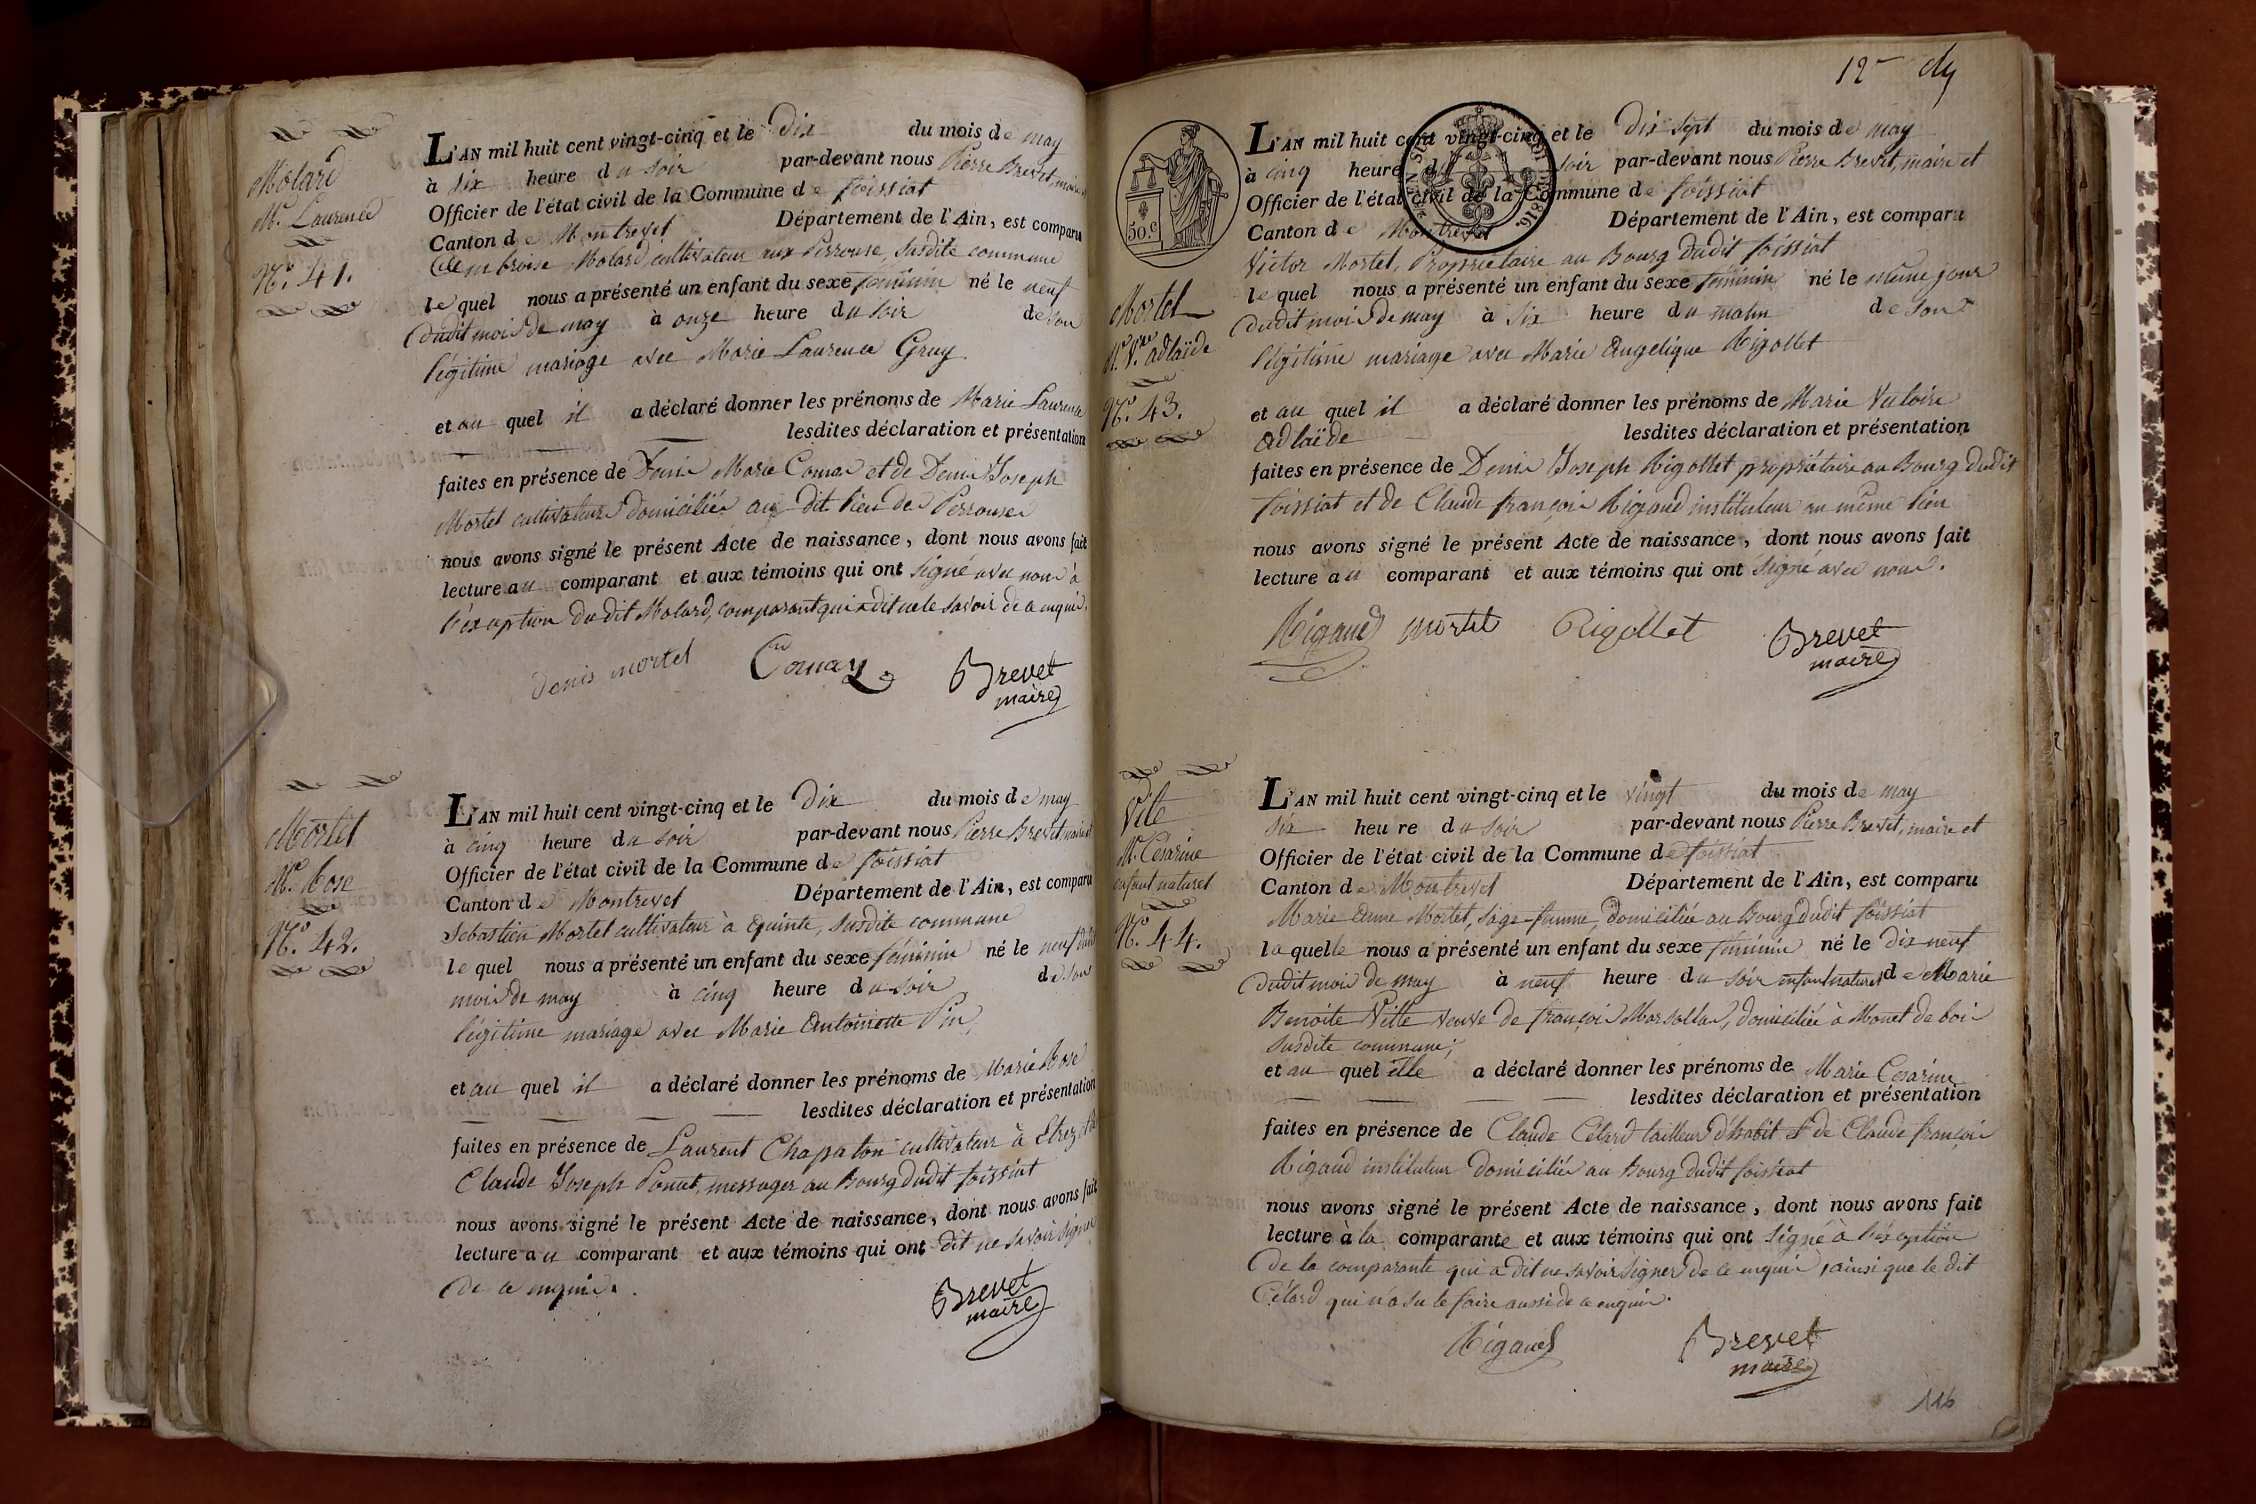 Molard
Mie Laurence
No. 41.
L'AN mil huit cent vingt-cinq et le dix du mois de may
à six heure du soir par-devant nous Pierre Brevet, maire et
Officier de l'état civil de la Commune de foissiat
Canton de Montrevel Département de l'Ain, est comparu
Ambroise Molard cultivateur aux Perrouse, susdite commune
lequel nous a présenté un enfant du sexe féminin né le neuf
dudit mois de may à onze heure du soir de son
légitime mariage avec Marie Laurence Gruy
et au quel il a déclaré donner les prénoms de Marie Laurence
lesdites déclaration et présentation
faites en présence de Denis Marie Comas et de Denis Joseph
Mortel cultivateurs domiciliés au dit lieu des Perrouses
nous avons signé le présent Acte de naissance, dont nous avons fait
lecture au comparant et aux témoins qui ont signé avec nous à
l'exeption dudit Molard, comparant qui a dit ne le savoir de ce enquis.
denis mortel Comas Brevet
maire
Mortel
Mie Rose
No. 42.
L'AN mil huit cent vingt-cinq et le dix du mois de may
à cinq heure du soir par-devant nous Pierre Brevet, maire et
Officier de l'état civil de la Commune de foissiat
Canton de Montrevel Département de l'Ain, est comparu
Sebastien Mortel cultivateur à Epuinte, susdite commune
lequel nous a présenté un enfant du sexe féminin né le neuf dudit
mois de may à cinq heure du soir de son
légitime mariage avec Marie Antoinette Pin
et au quel il a déclaré donner les prénoms de Marie Rose
lesdites déclaration et présentation
faites en présence de Laurent Chapaton cultivateur à Etrez et de
Claude Joseph Ponet, messager au Bourg dudit foissiat
nous avons signé le présent Acte de naissance, dont nous avons fait
lecture au comparant et aux témoins qui ont dit ne savoir signer
de ce enquis.
Brevet
maire
12
50.c
Mortel
Mie Vre adlaïde
No. 43.
L'AN mil huit cent vingt-cinq et le dix sept du mois de may
à cinq heure du soir par-devant nous Pierre Brevet, maire et
Officier de l'état civil de la Commune de foissiat
Canton de Montrevel Département de l'Ain, est comparu
Victor Mortel, Propriétaire au Bourg dudit foissiat
lequel nous a présenté un enfant du sexe féminin né le même jour
dudit mois de may à six heure du matin de son
légitime mariage avec Marie Angelique Rigollet
et au quel il a déclaré donner les prénoms de Marie Victoire
Adlaïde lesdites déclaration et présentation
faites en présence de Denis Joseph Rigollet propriétaire au Bourg dudit
foissiat et de Claude françois Rigaud instituteur au même lieu
nous avons signé le présent Acte de naissance, dont nous avons fait
lecture au comparant et aux témoins qui ont signé avec nous.
Rigaud mortel Rigollet Brevet
maire
Vite
Mie Cesarine
enfant naturel
No. 44.
L'AN mil huit cent vingt-cinq et le vingt du mois de may
six heure du soir par-devant nous Pierre Brevet, maire et
Officier de l'état civil de la Commune de foissiat
Canton de Montrevel Département de l'Ain, est comparu
Marie Anne Mortel, sage-femme, domiciliée au Bourg dudit foissiat
laquelle nous a présenté un enfant du sexe féminin né le dix neuf
dudit mois de may à neuf heure du soir enfant naturel de Marie
Benoite Vitte veuve de françois Marsollas, domiciliée à Monet de bois
susdite commune;
et au quel elle a déclaré donner les prénoms de Marie Cesarine
lesdites déclaration et présentation
faites en présence de Claude Célard tailleur d'habit & de Claude françois
Rigaud instituteur domiciliés au Bourg dudit foissiat
nous avons signé le présent Acte de naissance, dont nous avons fait
lecture à la comparante et aux témoins qui ont signé à l'exeption
de la comparante qui a dit ne savoir signer de ce enquis, ainsi que le dit
Célard qui n'a su le faire aussi de ce enquis.
Rigaud Brevet
maire
116